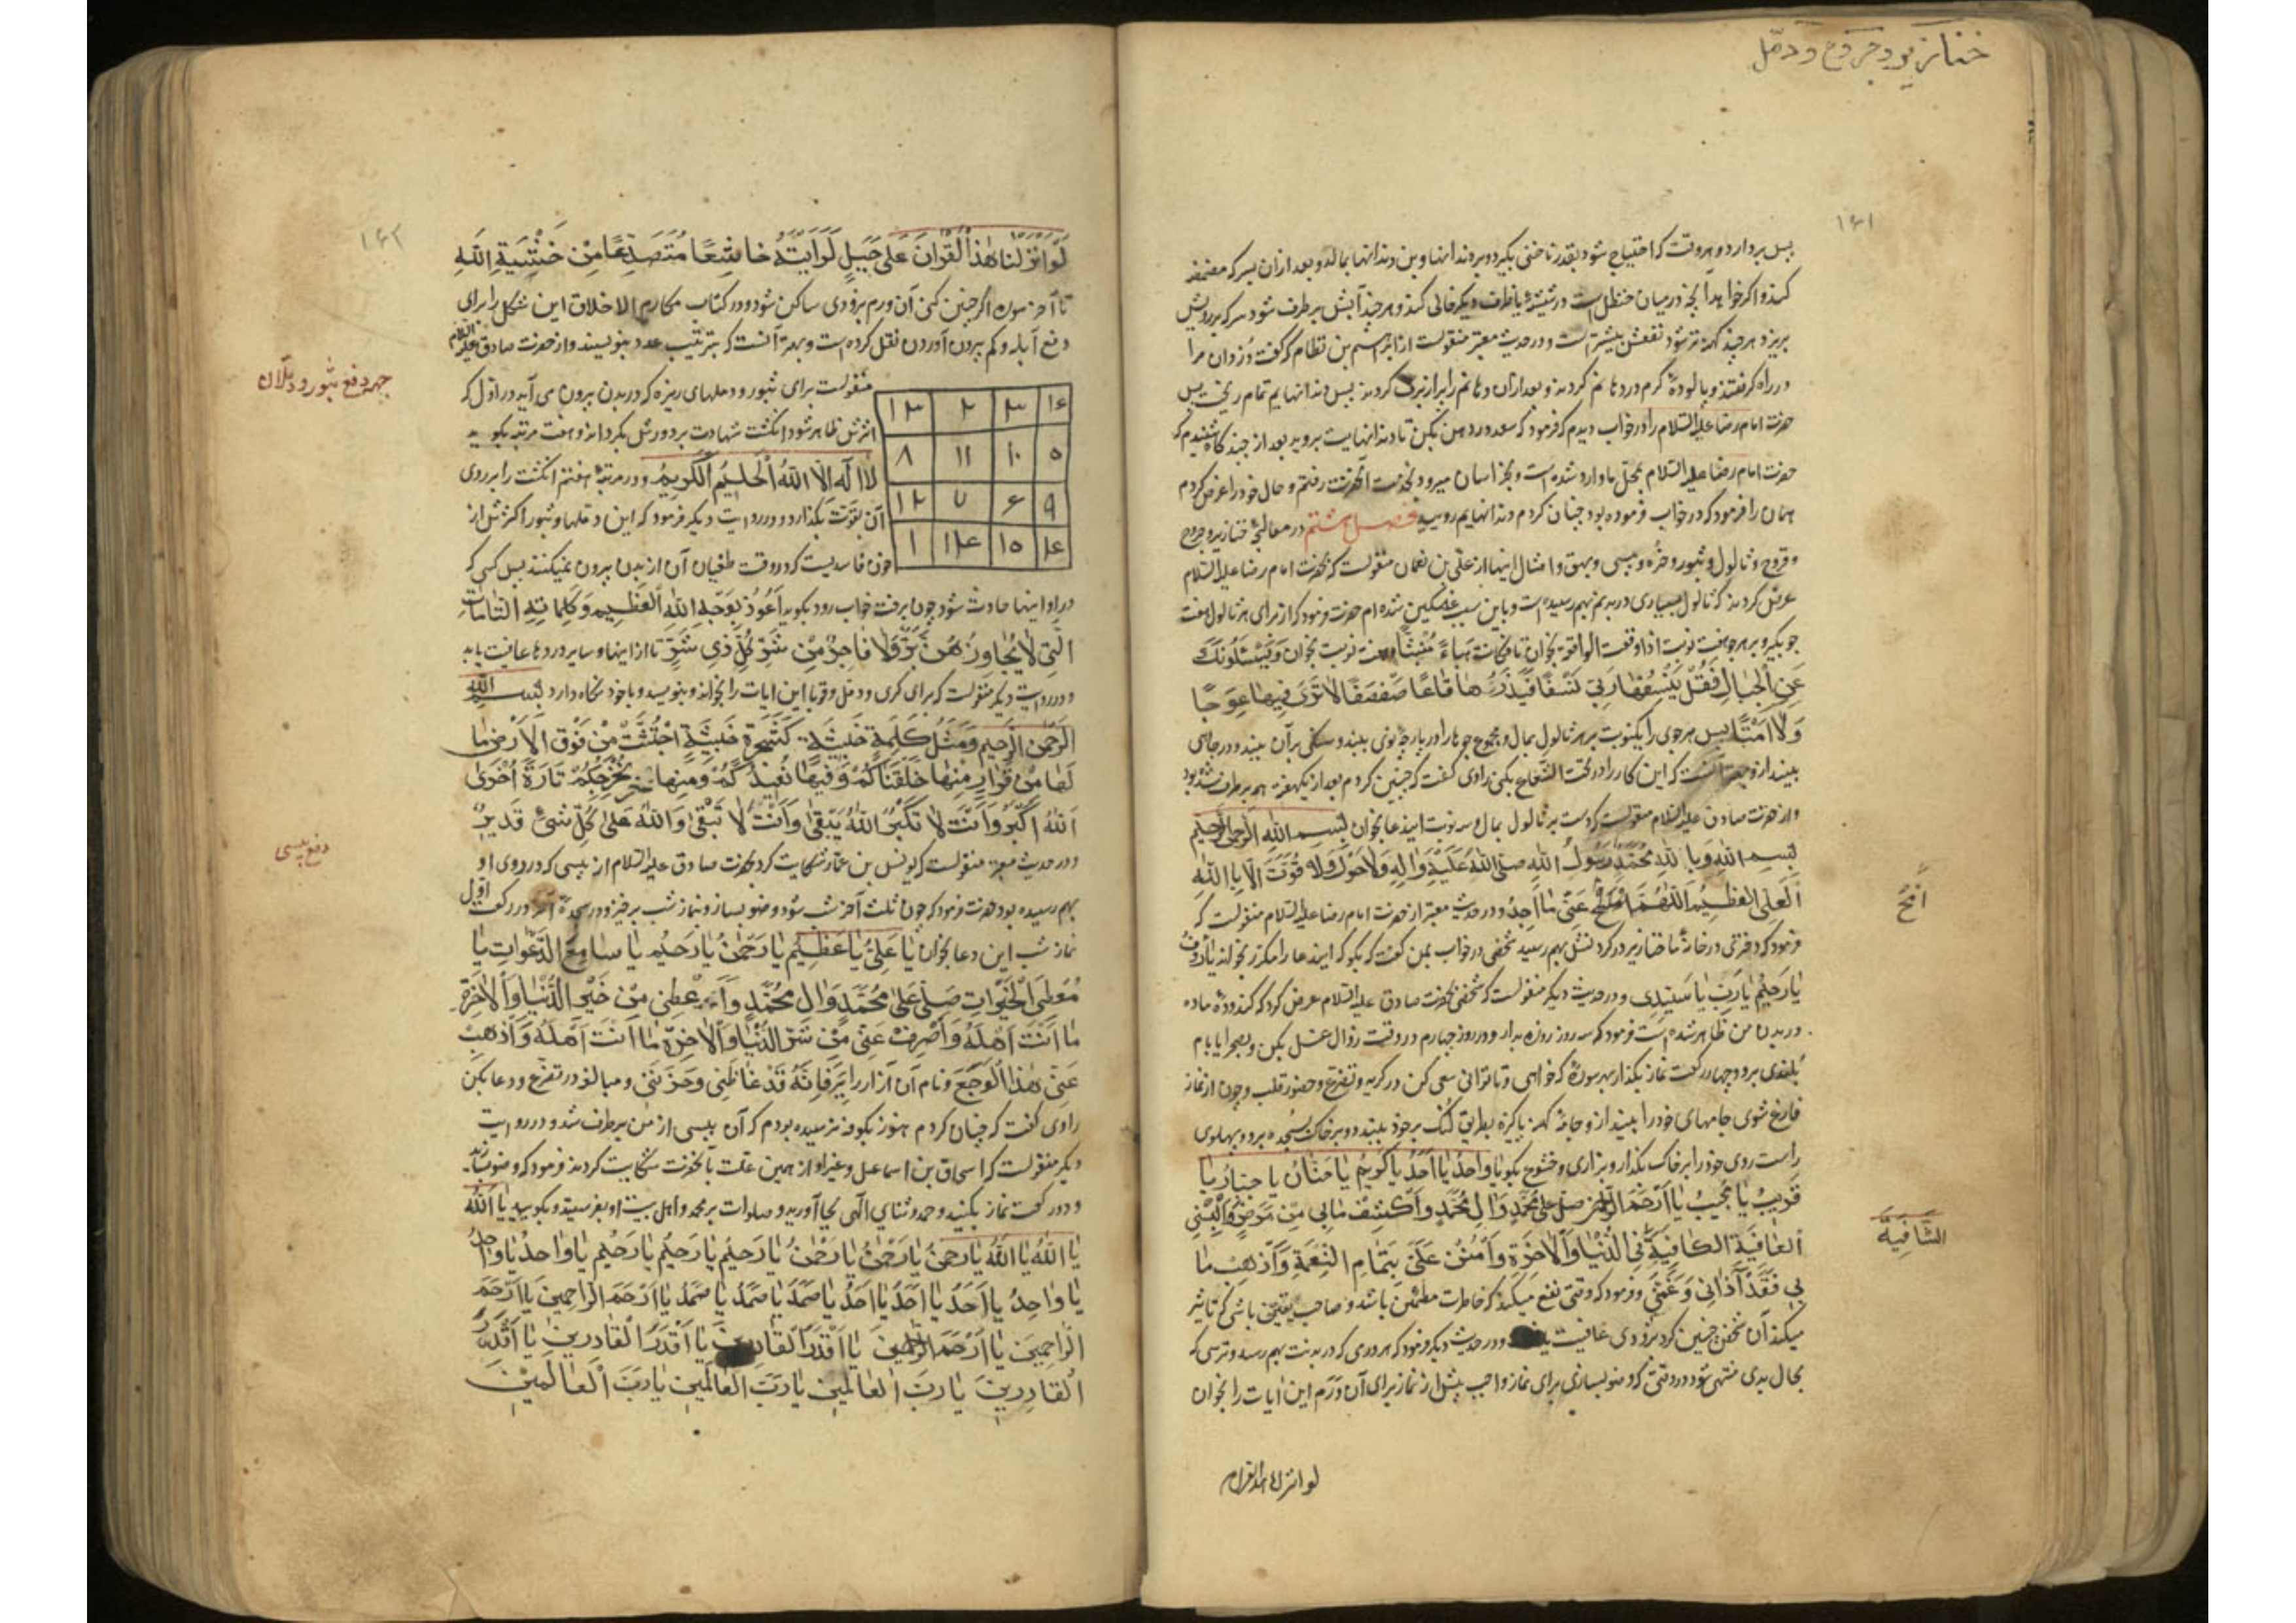 خنازیر و جروح و دمّل
۱۶۱
پس بردارد و هر وقت که احتیاج شود بقدر ناخنی بگیرد و بر دندانها و بن دندانها بمالد و بعد ازان بسرکه مضمضه
کند و اگر خواهد آنچه در میان حنظل است در شیشهٔ یا ظرف دیگر خالی کند و هر چند آبش بر طرف شود سرکه بر رویش
بریزد هر چند کهنه تر شود نفعش بیشتر است و در حدیث معتبر منقولست از ابراهیم بن نظام که گفت دزدان مرا
در راه گرفتند و پالودهٔ گرم در دهانم کردند و بعد ازان دهانم را پر از برف کردند پس دندانهایم تمام ریخت پس
حضرت امام رضا علیه السلام را در خواب دیدم که فرمود که سعد در دهن بکن تا دندانهایت بروید بعد از چند گاه شنیدم که
حضرت امام رضا علیه السلام بمحلّ ما وارد شده است و بخراسان میرود بخدمت آنحضرت رفتم و حال خود را عرض کردم
همان را فرمود که در خواب فرموده بود چنان کردم دندانهایم رویید فصل هشتم در معالجهٔ خنازیر و جروح
و قروح و ثالول و بثور و خُره و پیسی و بهق و امثال اینها از علی بن نعمان منقولست که بحضرت امام رضا علیه السلام
عرض کردند که ثالول بسیاری در بدنم بهم رسیده است و باین سبب غمگین شده ام حضرت فرمود که از برای هر ثالول هفت
جو بگیر و بر هر جو هفت نوبت اذا وقعت الواقعة بخوان تا فَکانَت هَباءً مُنبَثًّا و هفت نوبت بخوان وَیَسْئَلُونَكَ
عَنِ الْجِبالِ فَقُلْ یَنْسِفُها رَبّی نَسْفًا فَیَذَرُها قاعًا صَفْصَفًا لا تَری فیها عِوَجًا
وَلا اَمْتًا پس هر جوی را یکنوبت بر هر ثالول بمال و مجموع جوها را در پارچهٔ نوی ببند و سنگی بر آن ببند و در چاهی
بینداز و بهتر آنست که این کار را در تحت الشعاع بکنی راوی گفت که چنین کردم بعد از یکهفته همه بر طرف شده بود
و از حضرت صادق علیه السلام منقولست که دست بر ثالول بمال و سه نوبت ایندعا بخوان بِسمِ اللهِ الرحمن الرحیم
بِسمِ اللهِ وَبِاللهِ مُحَمَّدٌ رَسُولُ اللهِ صلی الله علیه و اله وَلا حَوْلَ وَلا قُوَّةَ اِلّا بِاللهِ
العَلِیِّ العَظیم اَللّهُمَّ امْحُ عَنّی ما اَجِدُ و در حدیث معتبر از حضرت امام رضا علیه السلام منقولست که
اُمْحُ
فرمود که دختری در خانهٔ ما خنازیر در گردنش بهم رسید شخصی در خواب بمن گفت که بگو که ایندعا را مکرّر بخواند یا رَؤُفُ
یا رَحیمُ یا رَبِّ یا سَیِّدی و در حدیث دیگر منقولست که شخصی بحضرت صادق علیه السلام عرض کرد که کنده و دهٔ ماده
در بدن من ظاهر شده است فرمود که سه روز روزه بدار و در روز چهارم در وقت زوال غسل بکن و بصحرا یا بام
بلندی برو و چهار رکعت نماز بگذار بهر سورهٔ که خواهی و تا توانی سعی کن در گریه و تضرع و حضور قلب و چون از نماز
فارغ شوی جامهای خود را بینداز و جامهٔ کهنه پاکیزه بطریق لُنگ بر خود ببند و بر خاک بسُجده برو و پهلوی
راست روی خود را بر خاک بگذار و بزاری و خشوع بگو یا واحِدُ یا اَحَدُ یا کَریمُ یا حَنّانُ یا جَبّارُ یا
قَریبُ یا مُجیبُ یا اَرْحَمَ الرّاحمین صَلِّ عَلی مُحَمَّدٍ وَ الِ مُحَمَّدٍ وَاکْشِفْ ما بی مِنْ مَرَضٍ وَاَلْبِسْنی
العافِیَةَ الکافِیَةَ فِی الدُّنْیا وَالاخِرَةِ وَامْنُنْ عَلَیَّ بِتَمامِ النِّعْمَةِ وَاَذْهِبْ ما
الشّافِیَةَ
بی فَقَدْ آذانی وَغَمَّنی و فرمود که وقتی نفع میکند که خاطرت مطمئن باشد و صاحب یقین باشی که تاثیر
میکند آن شخص چنین کرد بزودی عافیت یافت و در حدیث دیگر فرمود که هر وری که در بدنت بهم رسد و ترسی که
بحال بدی منتهی شود در وقتی که وضو بسازی برای نماز واجب پیش از نماز برای آن وَرَم این ایات را بخوان
لو انزلنا هذا القران
۱۶۲
لَوْ اَنْزَلْنا هٰذَا الْقُرْانَ عَلی جَبَلٍ لَرَاَیْتَهُ خاشِعًا مُتَصَدِّعًا مِنْ خَشْیَةِ اللهِ
تا آخر سوره اگر چنین کنی آن ورم بزودی ساکن شود و در کتاب مکارم الاخلاق این شکل را برای
دفع آبله و کم بیرون آوردن نقل کرده است و بهتر آنست که بترتیب عدد بنویسند و از حضرت صادق علیه السلام
جهة دفع بثور و دملان
منقولست برای بثور و دملهای ریزه که در بدن بیرون می آید در اوّل که
اثرش ظاهر شود انگشت شهادت بر دورش بگرداند و هفت مرتبه بگوید
لا اِلهَ اِلَّا اللهُ الْحَلیمُ الْکَریمُ و در مرتبهٔ هفتم انگشت را بر روی
آن بقوّت بگذارد و در روایت دیگر فرمود که این دملها و بثور اکثرش از
خون فاسدیست که در وقت طغیان آن از بدن بیرون نمیکنند پس کسی که
۱۳ ۲ ۳ ۱۶
۸ ۱۱ ۱۰ ۵
۱۲ ۷ ۶ ۹
۱ ۱۴ ۱۵ ۴
در او اینها حادث شود چون برخت خواب رود بگوید اَعُوذُ بِوَجْهِ اللهِ العَظیمِ وَکَلِماتِهِ التّامّاتِ
الَّتی لا یُجاوِزُهُنَّ بَرٌّ وَلا فاجِرٌ مِنْ شَرِّ کُلِّ ذی شَرٍّ تا از اینها و سایر دردها عافیت یابد
و در روایت دیگر منقولست که برای کری و دمل و قوبا این ایات را بخواند و بنویسد و با خود نگاه دارد بسم الله
الرحمن الرحیم وَمَثَلُ کَلِمَةٍ خَبیثَةٍ کَشَجَرَةٍ خَبیثَةٍ اجْتُثَّتْ مِنْ فَوْقِ الاَرْضِ ما
لَها مِنْ قَرارٍ مِنْها خَلَقْناکُمْ وَفیها نُعیدُکُمْ وَمِنْها نُخْرِجُکُمْ تارَةً اُخْری
اَللهُ اَکْبَرُ وَاَنْتَ لا تَکْبُرُ اَللهُ یَبْقی وَاَنْتَ لا تَبْقی وَاللهُ عَلی کُلِّ شَیْءٍ قَدیرٌ
دفع پیسی
و در حدیث معتبر منقولست که یونس بن عمّار شکایت کرد بحضرت صادق علیه السلام از پیسی که در روی او
بهم رسیده بود حضرت فرمود که چون ثلث آخر شب شود وضو بساز و نماز شب برخیز و در سجدهٔ آخر در رکعت اوّل
نماز شب این دعا بخوان یا عَلِیُّ یا عَظیمُ یا رَحْمٰنُ یا رَحیمُ یا سامِعَ الدَّعَواتِ یا
مُعْطِیَ الْخَیْراتِ صَلِّ عَلی مُحَمَّدٍ وَالِ مُحَمَّدٍ وَاَعْطِنی مِنْ خَیْرِ الدُّنْیا وَالاخِرَةِ
ما اَنْتَ اَهْلُهُ وَاصْرِفْ عَنّی مِنْ شَرِّ الدُّنْیا وَالاخِرَةِ ما اَنْتَ اَهْلُهُ وَاَذْهِبْ
عَنّی هٰذَا الْوَجَعَ و نام آن آزار را ببر فَاِنَّهُ قَدْ غاظَنی وَحَزَنَنی و مبالغه در تضرّع و دعا بکن
راوی گفت که چنان کردم هنوز بکوفه نرسیده بودم که آن پیسی از من بر طرف شد و در روایت
دیگر منقولست که اسحاق بن اسماعیل و غیر او از همین علّت بآنحضرت شکایت کردند فرمود که وضو بسازند
و دو رکعت نماز بکنید و حمد و ثنای الهی بجا آورید و صلوات بر محمد و اهل بیت او بفرستید و بگویید یا اَللهُ
یا اَللهُ یا اَللهُ یا رَحْمٰنُ یا رَحْمٰنُ یا رَحْمٰنُ یا رَحیمُ یا رَحیمُ یا رَحیمُ یا واحِدُ یا واحِدُ
یا واحِدُ یا اَحَدُ یا اَحَدُ یا اَحَدُ یا صَمَدُ یا صَمَدُ یا صَمَدُ یا اَرْحَمَ الرّاحِمینَ یا اَرْحَمَ
الرّاحِمینَ یا اَرْحَمَ الرّاحِمینَ یا اَقْدَرَ الْقادِرینَ یا اَقْدَرَ الْقادِرینَ یا اَقْدَرَ
الْقادِرینَ یا رَبَّ الْعالَمینَ یا رَبَّ الْعالَمینَ یا رَبَّ الْعالَمینَ